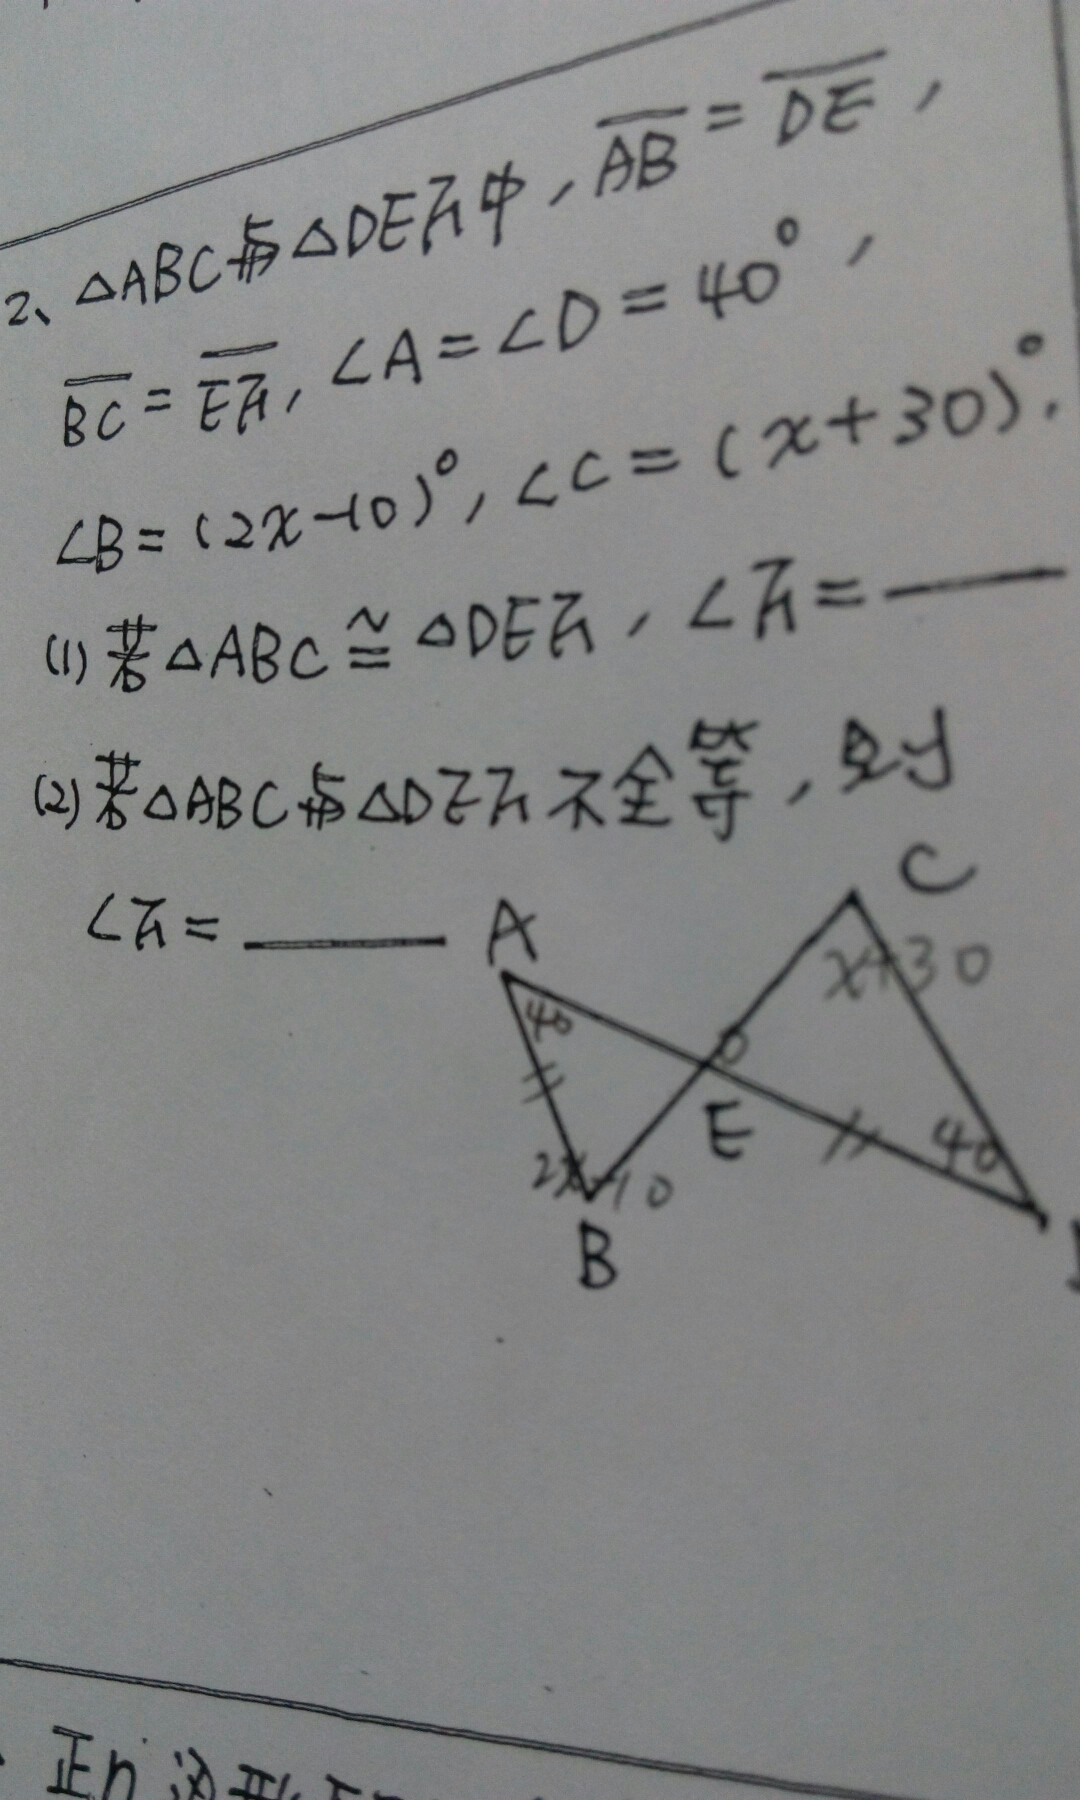 2、△ABC與△DEF中，AB = DE，
BC = EF，∠A = ∠D = 40°，
∠B = (2x-10)°，∠C = (x+30)°.
(1) 若△ABC ≅ △DEF，∠F = ____
(2) 若△ABC與△DEF不全等，則
∠F = ____
A
C
40
x+30
E
40
2x-10
B
正n边形